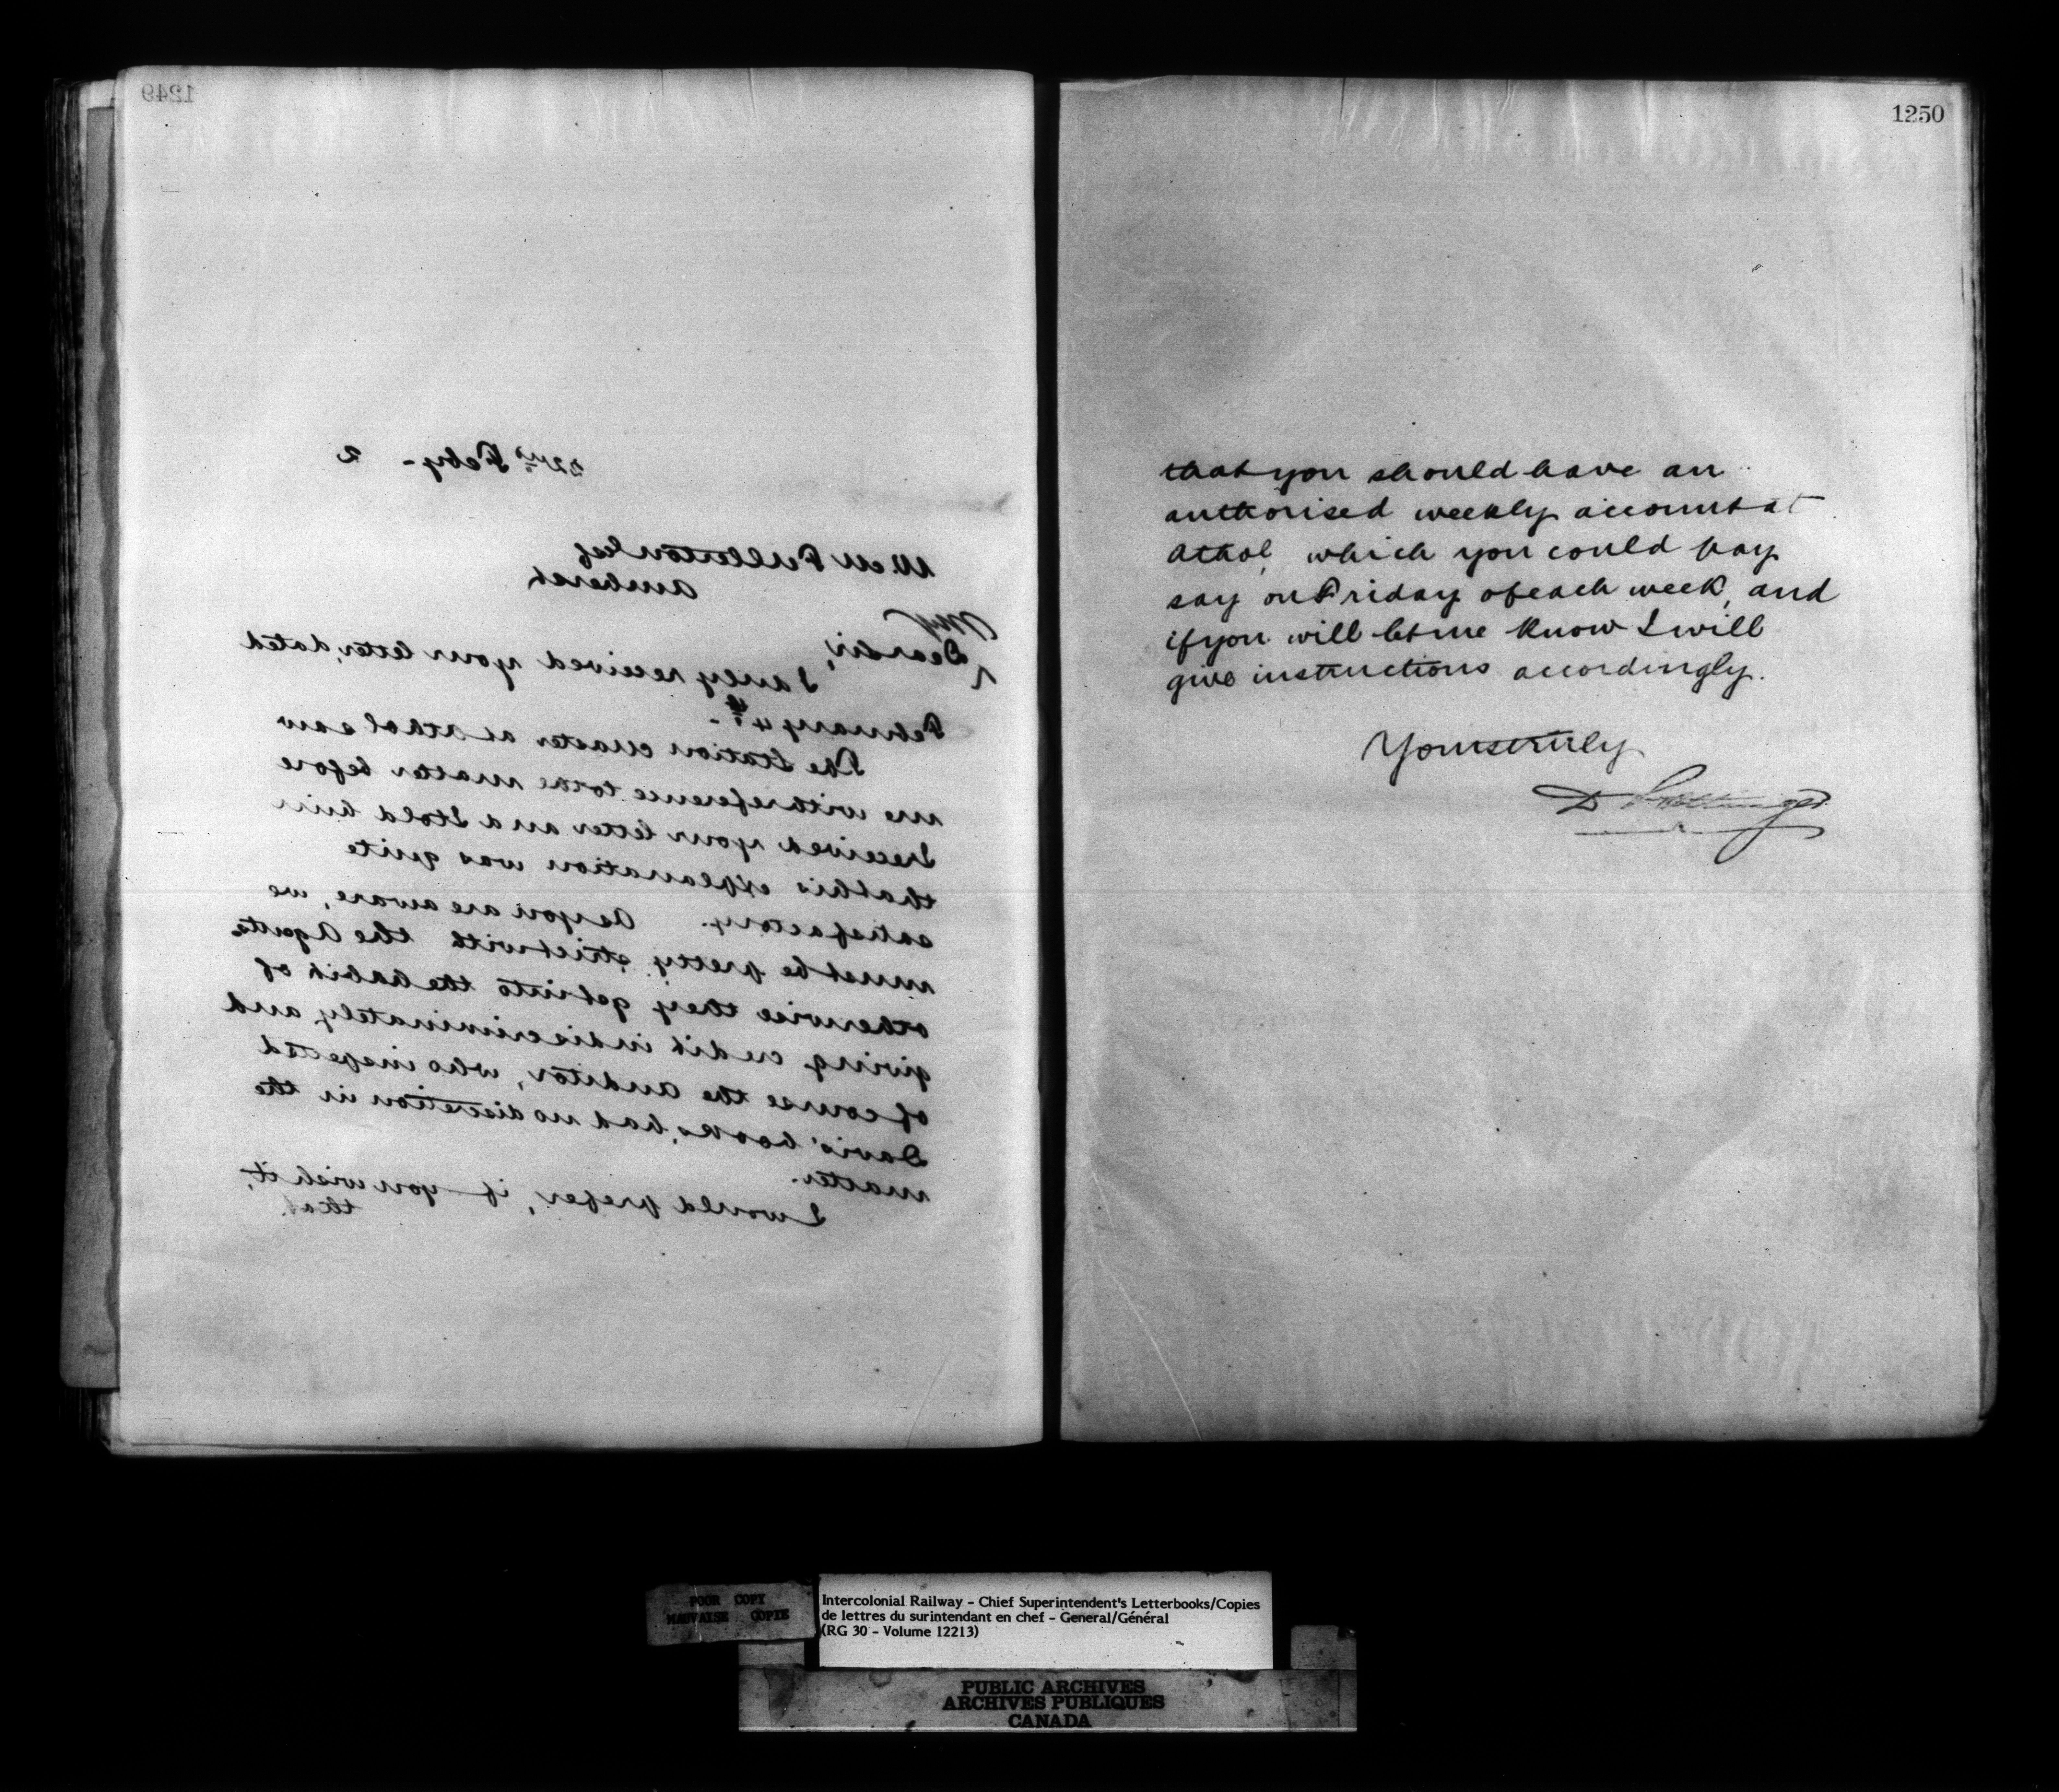 1249
22nd Feby - 2
W. M Fullerton Esq
Amherst
My
Dear Sir,
I duly received your letter, dated
February 4th -
The Station Master at Athol saw
me with reference to the matter before
I received your letter and I told him
that his explanation was quite
satisfactory. As you are aware, we
must be pretty strict with the Agents
otherwise they get into the habit of
giving credit indiscriminately, and
of course the auditor, who inspected
Davis' books, had no discretion in the
matter.
I would prefer, if you wish it,
that
1250
that you should have an
authorised weekly account at
Athol, which you could pay
say on Friday of each week, and
if you will let me know I will
give instructions accordingly.
Yours truly
D Pottinger
POOR COPY
MAUVAISE COPIE
Intercolonial Railway - Chief Superintendent's Letterbooks/Copies
de lettres du surintendant en chef - General/Général
(RG 30 - Volume 12213)
PUBLIC ARCHIVES
ARCHIVES PUBLIQUES
CANADA